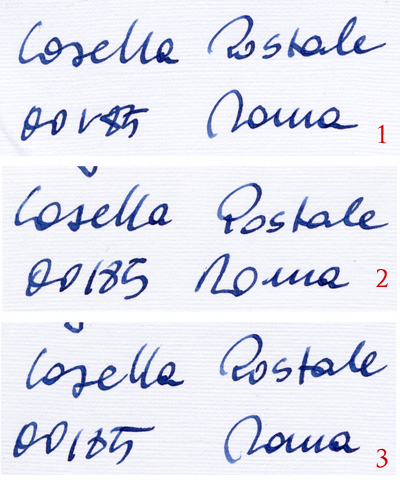 Casella Postale
00185 Roma
1
Casella Postale
00185 Roma
2
Casella Postale
00185 Roma
3